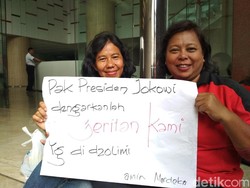 Pak Presiden Jokowi
dengarkanlah
Jeritan Kami
yg di dzolimi
detikcom